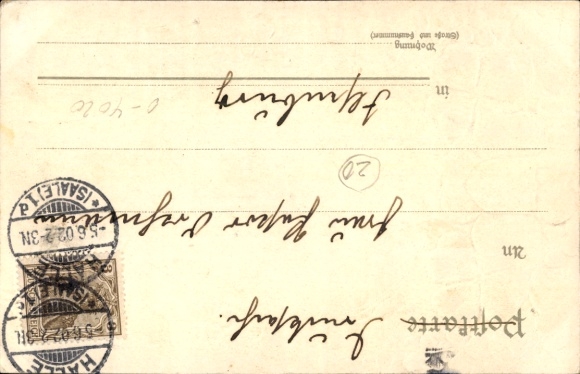 Postkarte
Drucksache.
An
Frau Pastor
in
Wohnung
(Straße und Hausnummer)
HALLE
*(SAALE)1d
5.6.02.2-3N.
HALLE
*(SAALE)1d
-5.6.02.2-3N.
3
20
0-4020